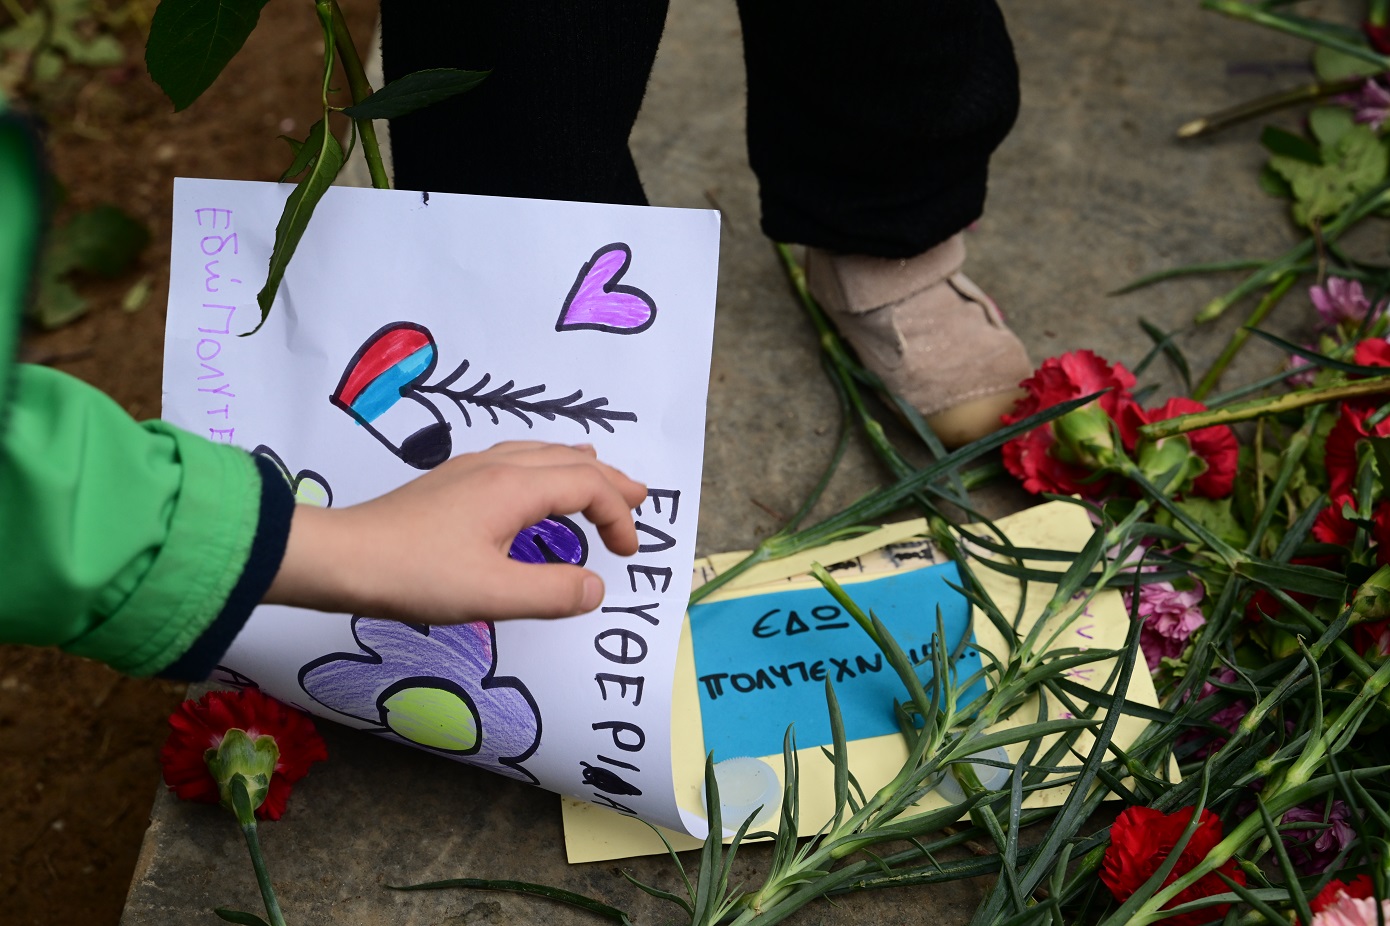 Εδώ Πολυτε
ΕΛΕΥΘΕΡΙΑ
ΕΔΩ
ΠΟΛΥΤΕΧΝ